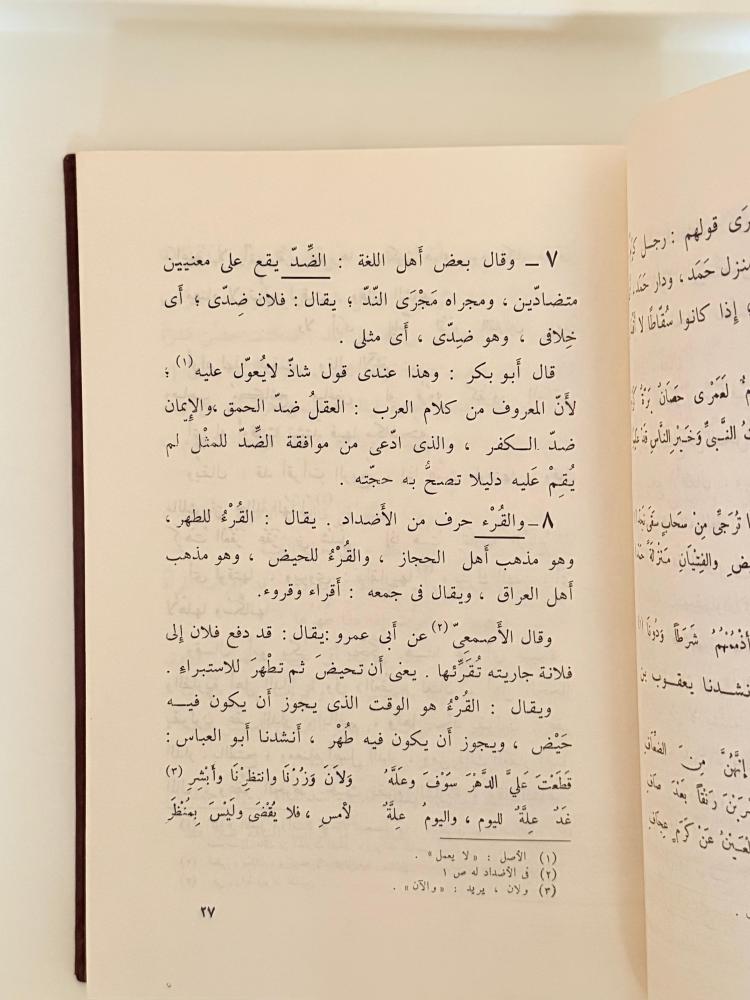 ٧ – وقال بعض أَهل اللغة : الضِّدّ يقع على معنيين
متضادّين ، ومجراه مَجْرَى النِّدّ ؛ يقال : فلان ضِدِّى ؛ أَى
خِلافى ، وهو ضِدِّى ، أَى مثلى .
قال أَبو بكر : وهذا عندى قول شاذّ لايُعوّل عليه (١) ؛
لأَنّ المعروف من كلام العرب : العقلُ ضدّ الحمق ،والإِيمان
ضدّ الكفر ، والذى ادّعى من موافقة الضِّدّ للمثْل لم
يُقِمْ عَليه دليلا تصحُّ به حجّته .
٨ – والقُرْء حرف من الأَضداد . يقال : القُرْءُ للطهر ،
وهو مذهب أَهل الحجاز ، والقُرْءُ للحيض ، وهو مذهب
أَهل العراق ، ويقال فى جمعه : أَقراء وقروء.
وقال الأَصمعىّ (٢) عن أَبى عمرو :يقال : قد دفع فلان إلى
فلانة جاريته تُقَرِّئها . يعنى أَن تحيضَ ثم تطْهرَ للاستبراءِ .
ويقال : القُرْءُ هو الوقت الذى يجوز أَن يكون فيه
حَيْض ، ويجوز أَن يكون فيه طُهْر ، أَنشدنا أَبو العباس :
قَطَعْتَ عَلىَّ الدَّهْرَ سَوْفَ وعَلَّهُ ولَانَ وَزُرْنَا وانتظِرْنَا وأَبْشِرِ (٣)
غَدُ عِلَّةٌ لليوم ، واليومُ عِلَّةٌ لأَمسِ ، فلا يُقْضَى ولَيْسَ بِمُنْظَرَ
(١) الأصل : « لا يعمل » .
(٢) فى الأضداد له ص ١
(٣) ولان ، يريد : « والآن » .
٢٧
قولهم : رجل
منزل حَمَد ، ودار
إِذا كانوا سُقَّاطًا
لَعَمْرِى حَصَانٌ
النَّبىِّ وَخَيْرِ النَّاسِ
تُرَجَّى مِنْ سَحَابٍ
والفِتْيَانِ
شَرَطًا وَدُونَا
أنشدنا يعقوب بن
إِنَّهُنَّ مِنَ
رَنْقًا بَعْدَ
عَنْ كَرَمٍ